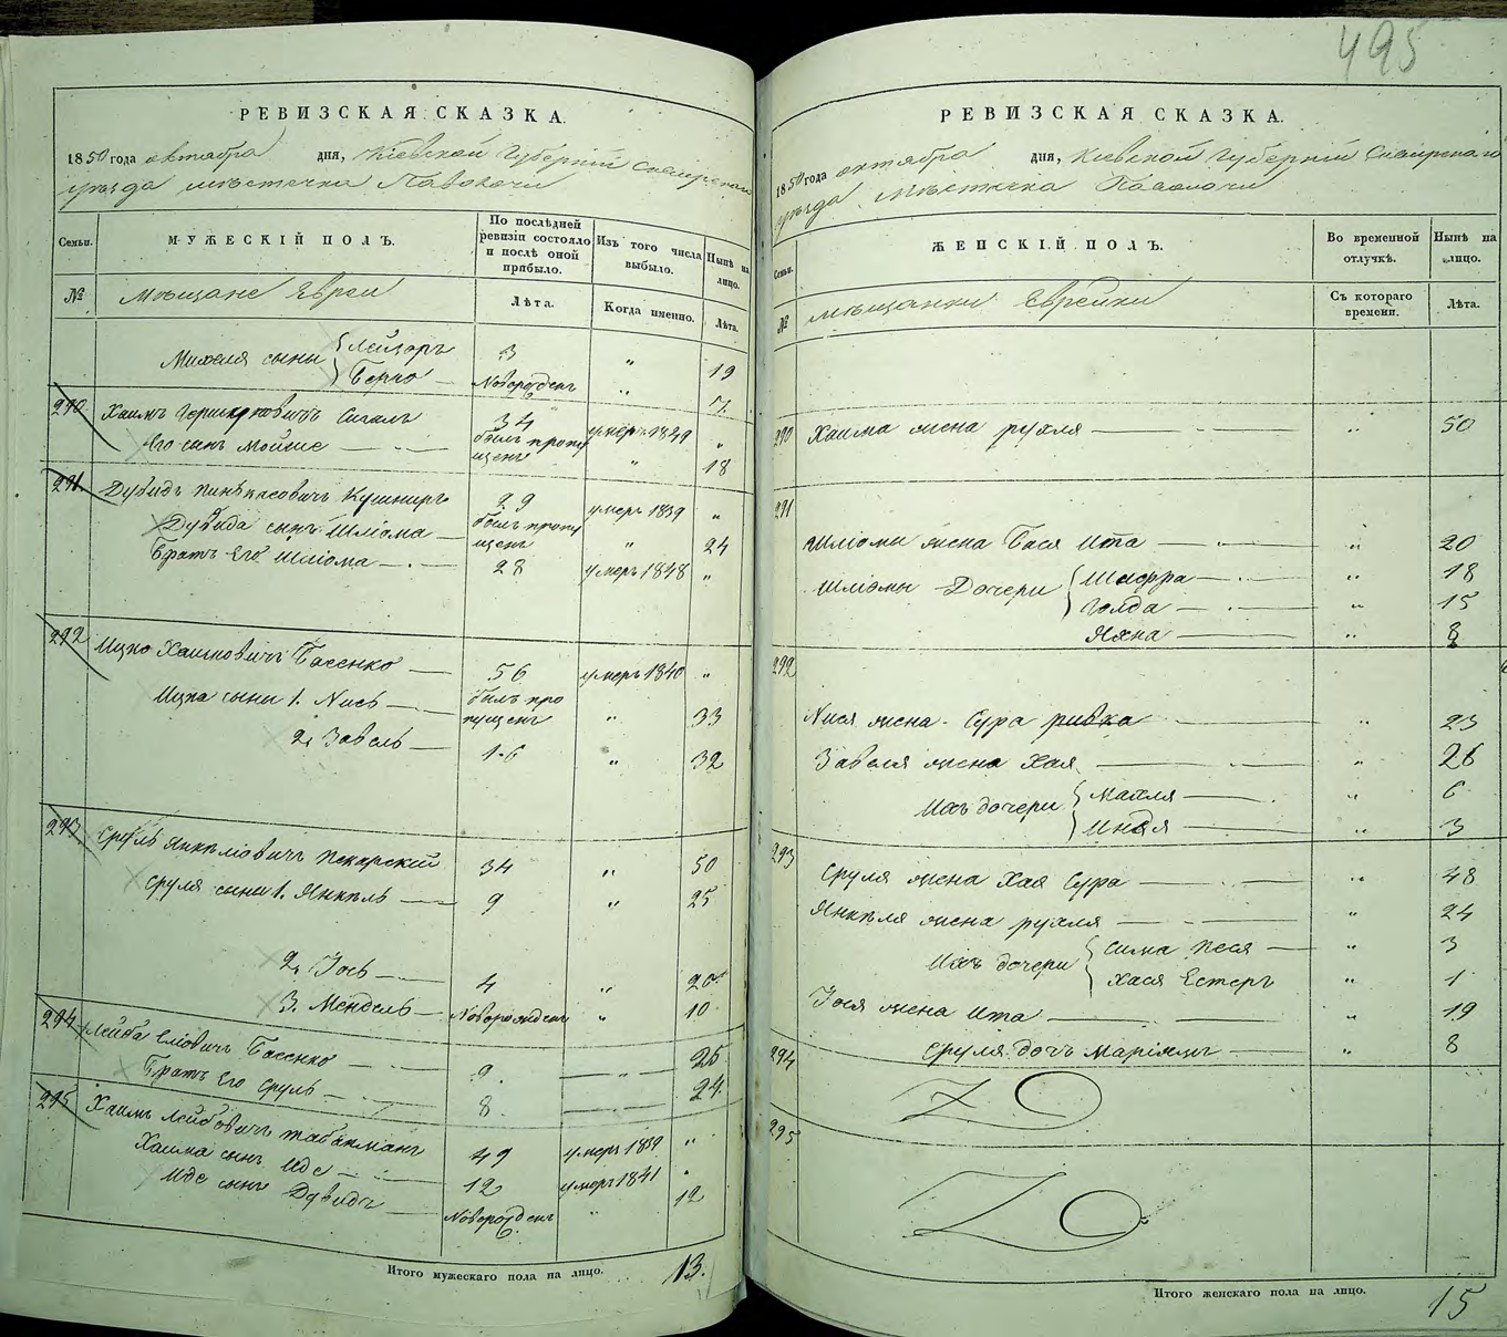 495
РЕВИЗСКАЯ СКАЗКА.
1850 года октября дня, Кіевской Губерніи Сквирскаго
уѣзда мѣстечка Паволочи
Семьи.
МУЖЕСКІЙ ПОЛЪ.
По послѣдней ревизіи состояло и послѣ оной прибыло.
Изъ того числа выбыло.
Нынѣ на лицо.
№
Мѣщане Евреи
Лѣта.
Когда именно.
Лѣта.
Михеля сыны { Лейзоръ 3 " 19
Берко — Новорожден " 7
290 Хаимъ Гершковичъ Сигалъ 34 умеръ 1849 "
Его сынъ Мойше — былъ пропущенъ " 18
291 Дувидъ Пинькасовичъ Кушниръ 29 умеръ 1839 "
Дувида сынъ Шліома — былъ пропущенъ " 24
Братъ Его Шліома — 28 умеръ 1848 "
292 Ицко Хаимовичъ Басенко — 56 умеръ 1840 "
Ицка сыны 1. Нись — былъ пропущенъ " 33
2. Завель — 1-6 " 32
293 Сруль Янкеліовичъ Пекарскій 34 " 50
Сруля сыны 1. Янкель — 9 " 25
2. Іось — 4 " 20
3. Мендель — Новорожденъ " 10
294 Лейба Еліовичъ Басенко — 9 — " — 25
Братъ Его Сруль — 8 — 24
295 Хаимъ Лейбовичъ Табакманъ 49 умеръ 1839 "
Хаима сынъ Иде — 12 умеръ 1841 "
Иде сынъ Дувидъ — Новорожденъ " 12
Итого мужескаго пола на лицо. 13.
РЕВИЗСКАЯ СКАЗКА.
1850 года октября дня, Кіевской Губерніи Сквирскаго
уѣзда Мѣстечка Паволочи
Семьи.
ЖЕНСКІЙ ПОЛЪ.
Во временной отлучкѣ.
Нынѣ на лицо.
№
Мѣщанки Еврейки
Съ котораго времени.
Лѣта.
290 Хаима жена Рухля — " 50
291
Шліомы жена Бася Ита — " 20
Шліомы Дочери { Шифра — " 18
Голда — " 15
Яхна — " 8
292
Нися жена Сура Ривка — " 23
Завеля жена Хая — " 26
Ихъ дочери { Махля — " 6
Индя — " 3
293 Сруля жена Хая Сура — " 48
Янкеля жена Рухля — " 24
Ихъ дочери { Сима Песя — " 3
Хася Естеръ " 1
Іося жена Ита — " 19
Сруля дочь Маріямъ — " 8
294
295
Итого женскаго пола на лицо. 15